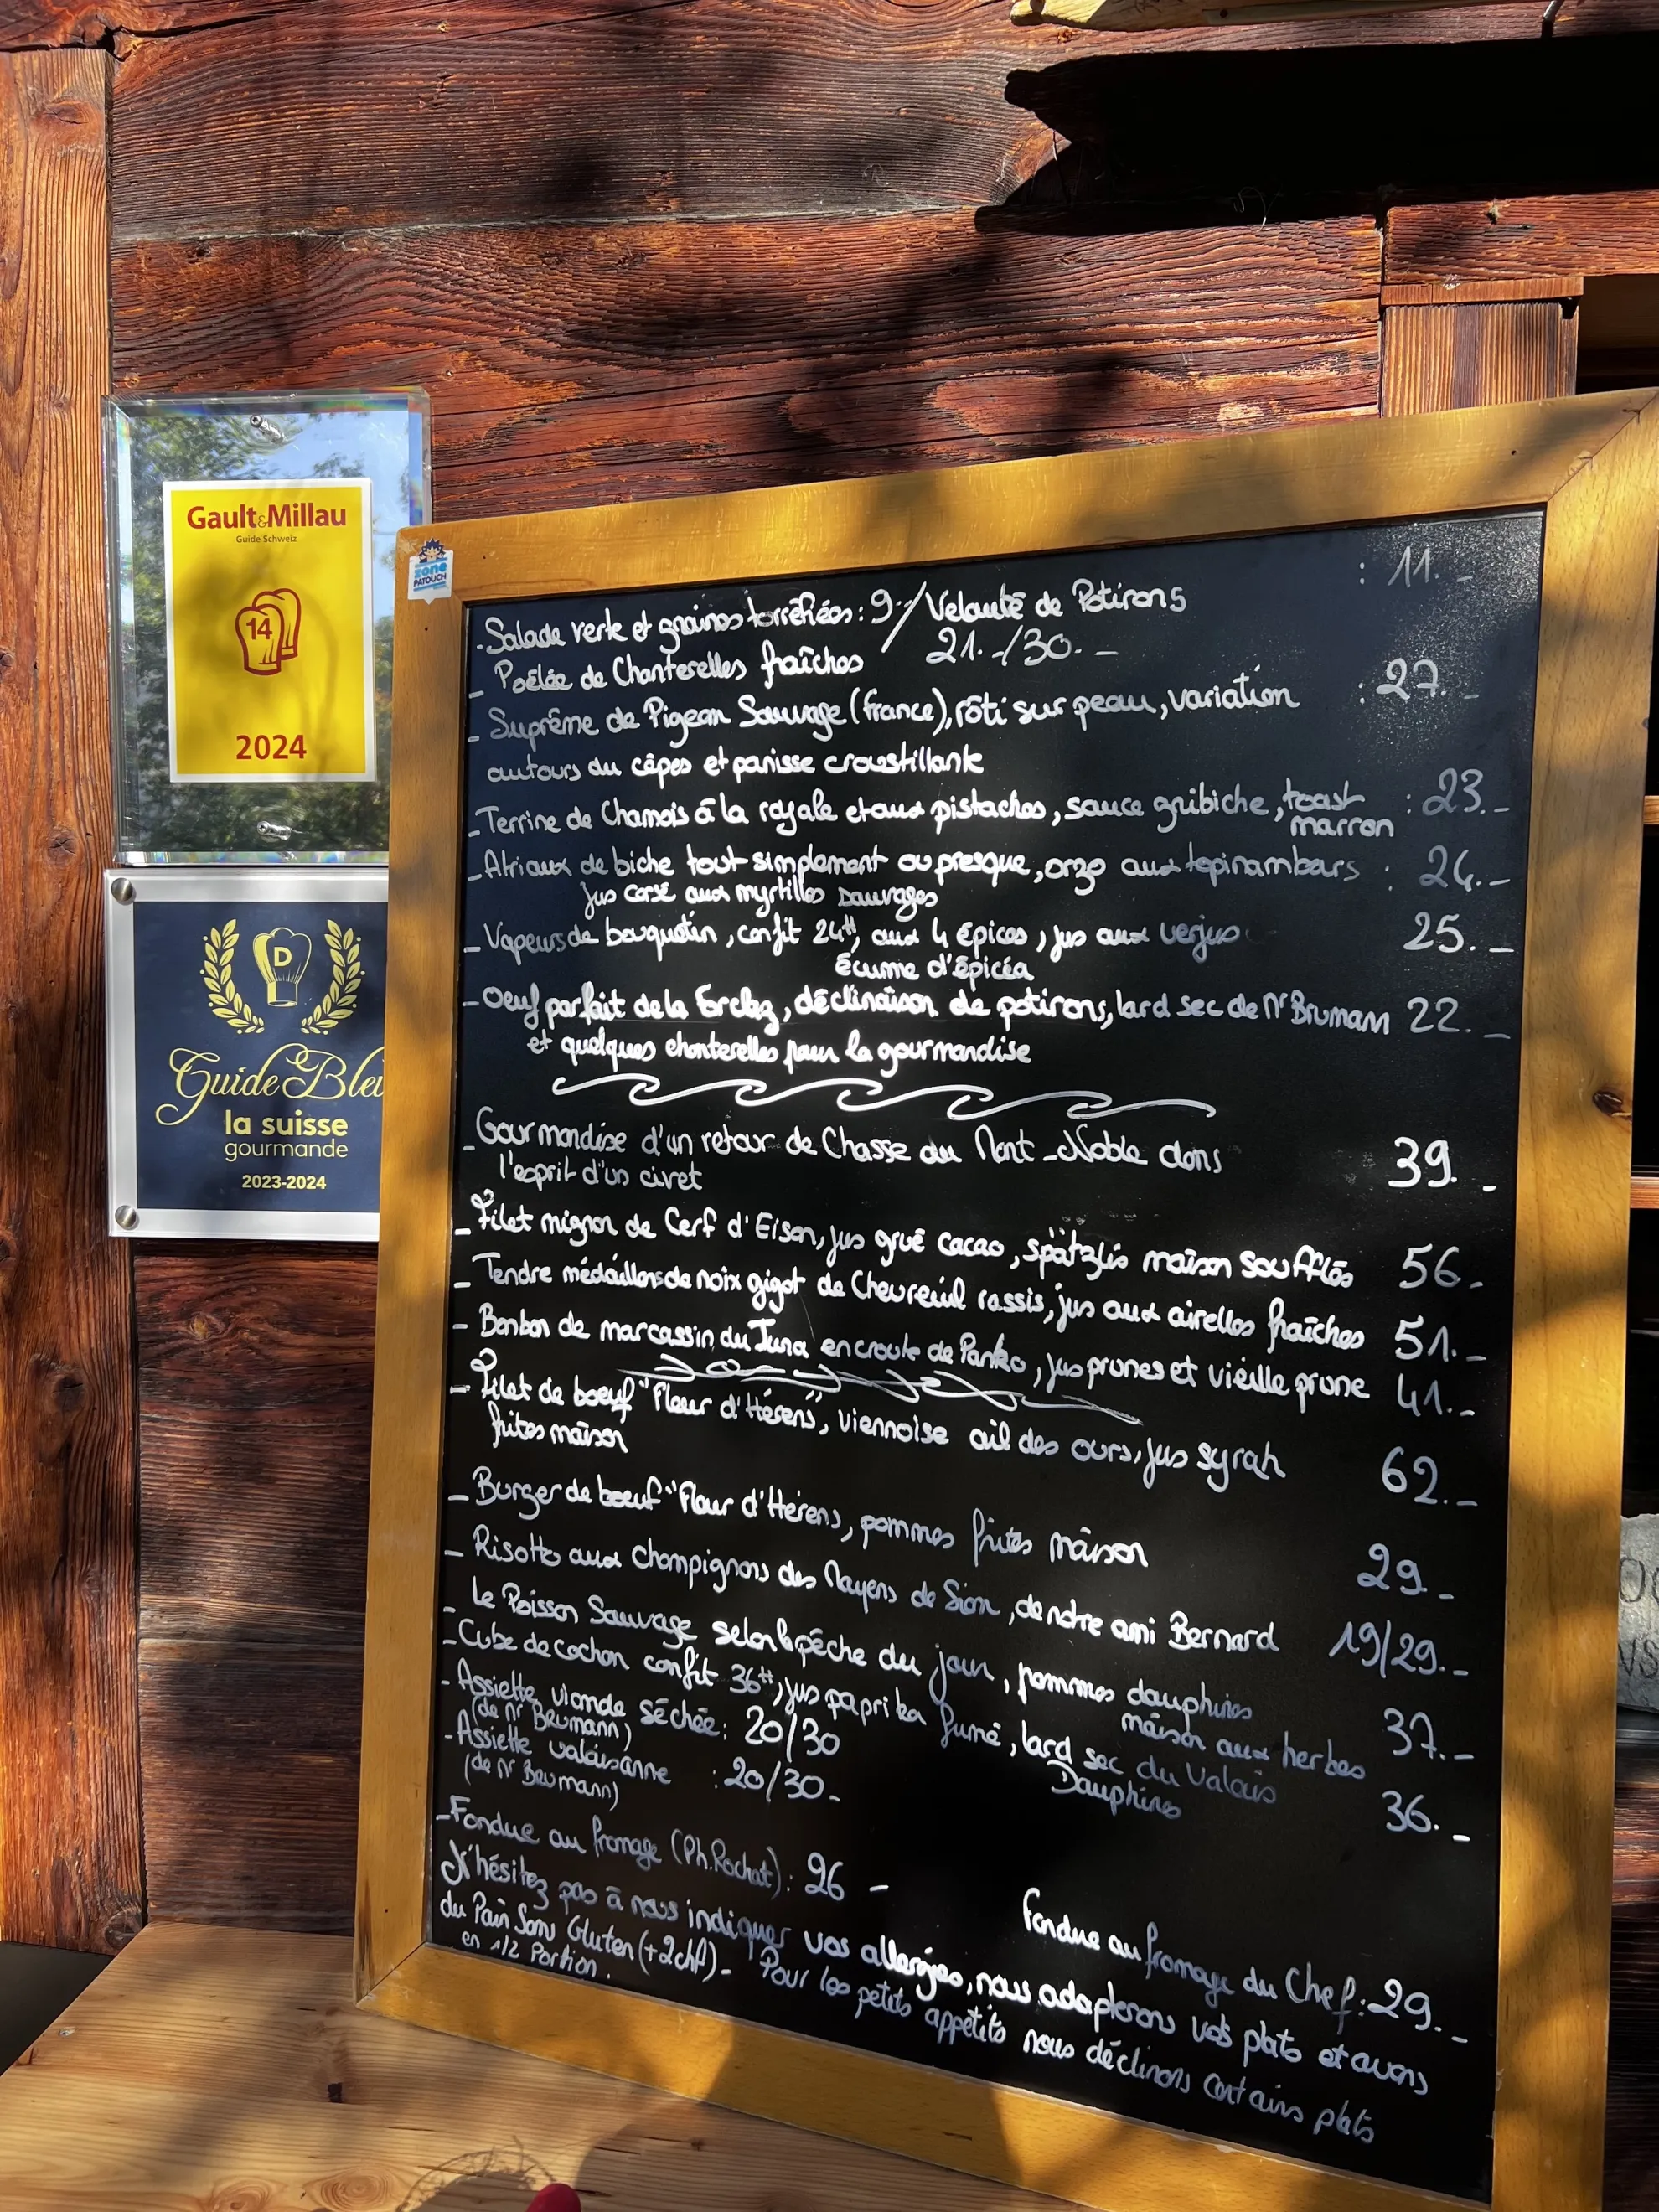 Gault&Millau
Guide Schweiz
14
2024
zone
PATOUCH
D
Guide Bleu
la suisse
gourmande
2023-2024
- Salade verte et graines torréfiées : 9.- / Velouté de Potirons : 11.-
- Poêlée de Chanterelles fraîches 21.-/30.-
- Suprême de Pigeon Sauvage (France), rôti sur peau, variation : 27.-
autours du cèpes et panisse croustillante
- Terrine de Chamois à la royale et aux pistaches, sauce gribiche, toast : 23.-
marron
- Atriaux de biche tout simplement ou presque, orzo aux topinambars : 24.-
Jus corsé aux myrtilles sauvages
- Vapeurs de bouquetin, confit 24H, aux 4 épices, jus aux verjus 25.-
écume d'épicéa
- Oeuf parfait de la Forclaz, déclinaison de potirons, lard sec de Mr Brumann 22.-
et quelques chanterelles pour la gourmandise
- Gourmandise d'un retour de Chasse du Mont-Noble dans 39.-
l'esprit d'un civet
- Filet mignon de Cerf d'Eison, jus grué cacao, spätzlis maison soufflés 56.-
- Tendre médaillons de noix gigot de Chevreuil rassis, jus aux airelles fraîches 51.-
- Bonbon de marcassin du Jura en croute de Panko, jus prunes et vieille prune 41.-
- Filet de boeuf "Fleur d'Hérens", viennoise ail des ours, jus syrah 62.-
frites maison
- Burger de boeuf "Fleur d'Hérens, pommes frites maison 29.-
- Risotto aux Champignons des Mayens de Sion, de notre ami Bernard 19/29.-
- Le Poisson Sauvage selon la pêche du jour, pommes dauphines 37.-
maison aux herbes
- Cube de cochon confit 36H, jus paprika fumé, lard sec du Valais 36.-
Dauphines
- Assiette viande séchée : 20/30
(de Mr Beumann)
- Assiette valaisanne : 20/30.-
(de Mr Beumann)
- Fondue au fromage (Ph.Rochat) : 26 -
Fondue au fromage du Chef : 29.-
N'hésitez pas à nous indiquer vos allergies, nous adapterons vos plats et avons
du Pain Sans Gluten (+2chf) - Pour les petits appétits nous déclinons certains plats
en 1/2 Portion.